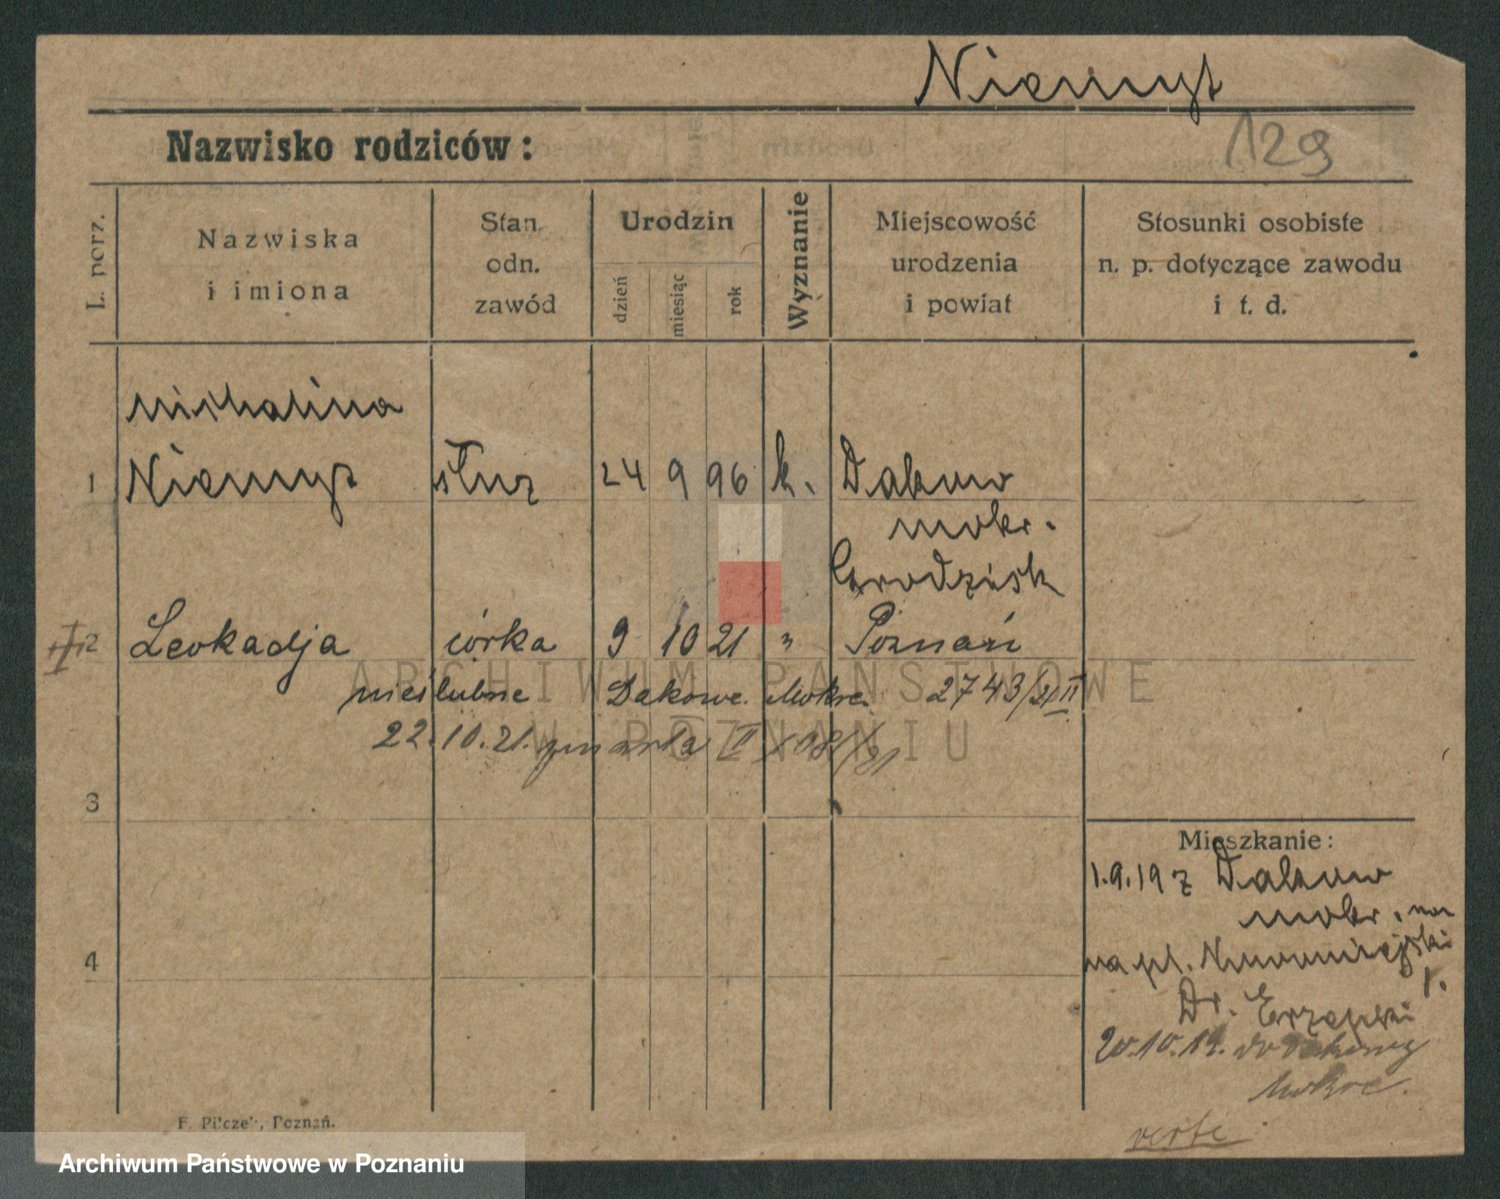 Niemyt
129
Nazwisko rodziców:
L. porz.
Nazwiska
i imiona
Stan.
odn.
zawód
Urodzin
dzień
miesiąc
rok
Wyznanie
Miejscowość
urodzenia
i powiat
Stosunki osobiste
n. p. dotyczące zawodu
i t. d.
Michalina
1 Niemyt służ 24 9 96 k. Dakow
mokr.
Grodzisk
2 Leokadja córka 9 10 21 " Poznań
nieślubne Dakowe Mokre 2743/21 II
22.10.21. zmarła II
3
Mieszkanie:
1.9.19 z Dakow
mokr. na
na pl. Nowomiejski
1.
Dr. Erzepki
20.10.19. do Dakowy
Mokre.
4
verte
F. Pilczek, Poznań.
ARCHIWUM PAŃSTWOWE
W POZNANIU
Archiwum Państwowe w Poznaniu